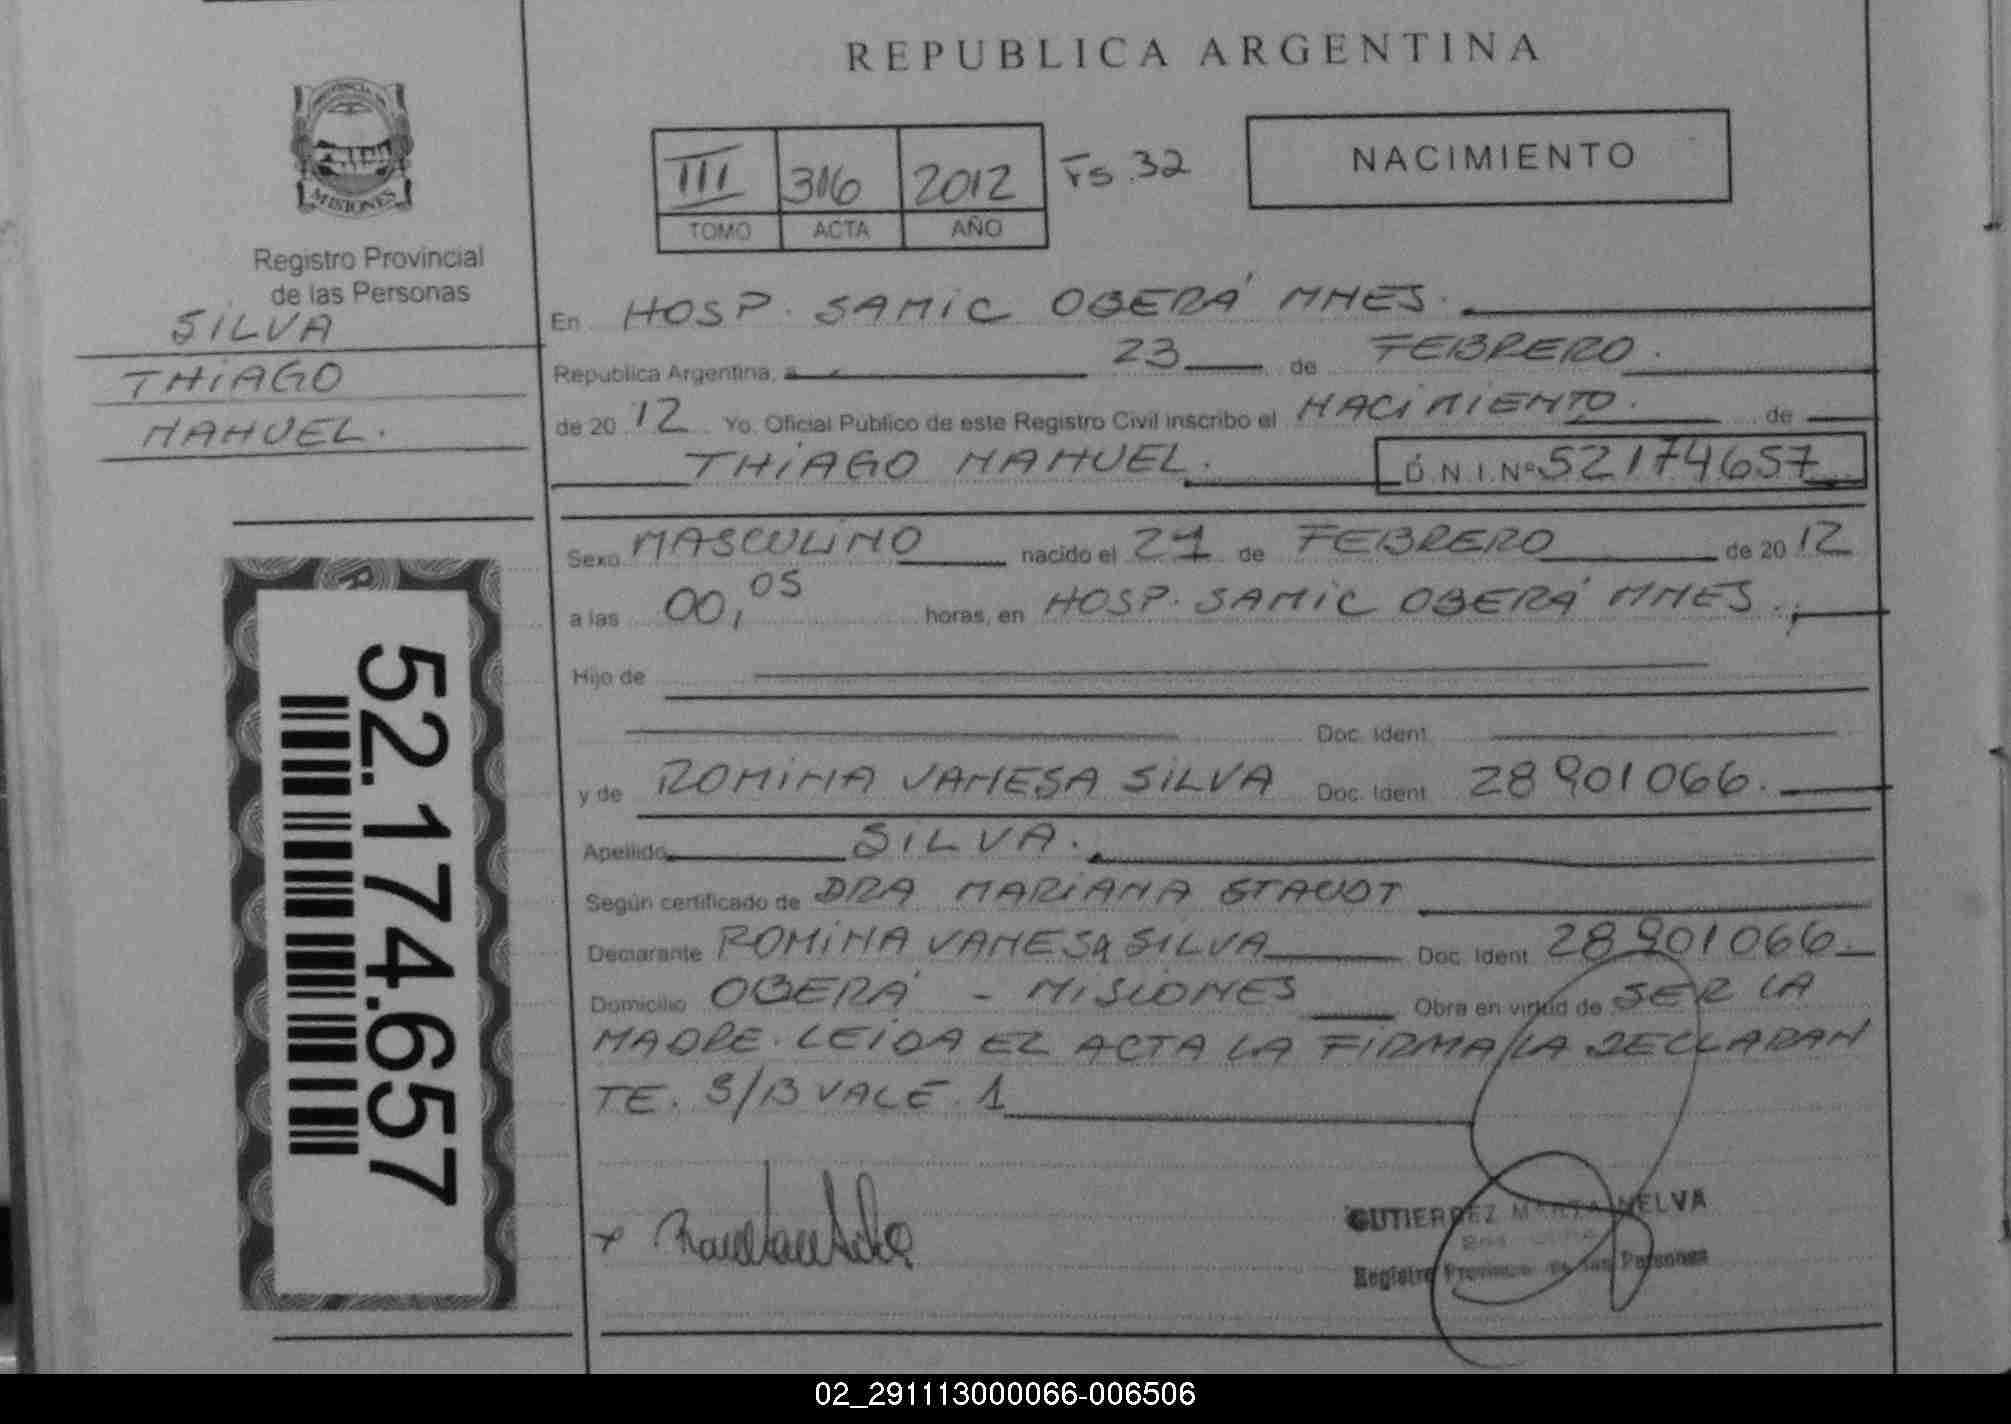 REPUBLICA ARGENTINA
PROVINCIA DE
MISIONES
Registro Provincial
de las Personas
SILVA
THIAGO
NAHUEL.
III 316 2012 Fs.32
TOMO ACTA AÑO
NACIMIENTO
En HOSP. SAMIC OBERÁ MNES.
Republica Argentina, a 23 de FEBRERO.
de 2012 Yo, Oficial Público de este Registro Civil inscribo el NACIMIENTO. de
THIAGO NAHUEL. D.N.I.Nº 52174657
Sexo MASCULINO nacido el 21 de FEBRERO de 2012
a las 00,05 horas, en HOSP. SAMIC OBERÁ MNES.
Hijo de
Doc. Ident.
y de ROMINA VANESA SILVA Doc. Ident. 28901066.
Apellido SILVA.
Según certificado de DRA MARIANA STAUDT
Declarante ROMINA VANESA SILVA Doc. Ident. 28901066.
Domicilio OBERÁ - MISIONES Obra en virtud de SER LA
MADRE. LEIDA EL ACTA LA FIRMA LA DECLARAN
TE. S/B VALE. 1
52.174.657
GUTIERREZ MARTA NELVA
Registro Provincial de las Personas
02_291113000066-006506